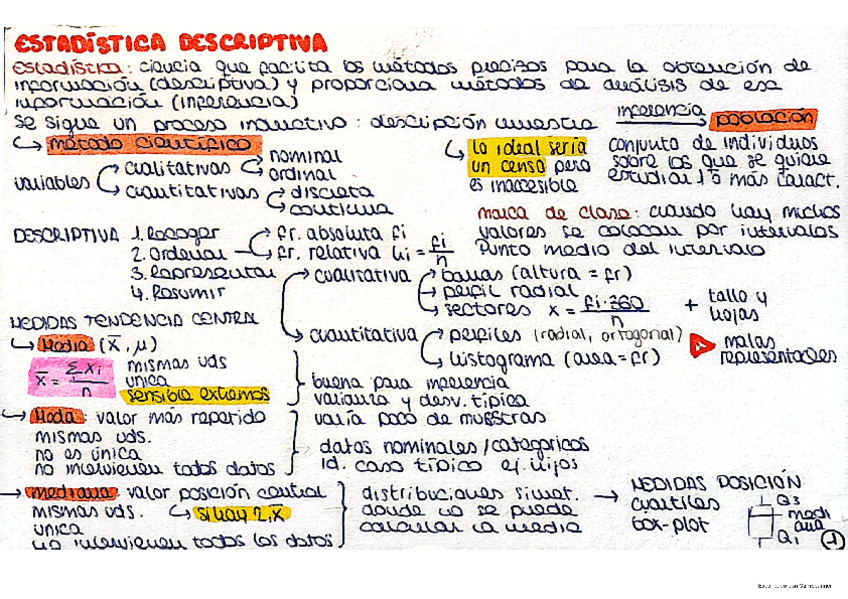 ESTADÍSTICA DESCRIPTIVA
Estadística: ciencia que facilita los métodos precisos para la obtención de
información (descriptiva) y proporciona métodos de análisis de esa
información (inferencia)
se sigue un proceso inductivo: descripción muestra inferencia población
método científico
lo ideal sería
un censo pero
es inaccesible
conjunto de individuos
sobre los que se quiere
estudiar 1 o más caract.
variables
cualitativas
nominal
ordinal
cuantitativas
discreta
continua
marca de clase: cuando hay muchos
valores se colocan por intervalos
Punto medio del intervalo
DESCRIPTIVA 1. Recoger
2. Ordenar
3. Representar
4. Resumir
fr. absoluta fi
fr. relativa hi = fi/n
cualitativa
barras (altura = fr)
perfil radial
sectores x = fi·360/n
+ tallo y
hojas
cuantitativa
perfiles (radial, ortogonal)
histograma (area = fr)
malas
representantes
MEDIDAS TENDENCIA CENTRAL
Media (x̄, μ)
x̄ = Σxi/n
mismas uds
unica
sensible extremos
buena para inferencia
varianza y desv. típica
varía poco de muestras
Moda: valor más repetido
mismas uds.
no es única
no intervienen todos datos
datos nominales/categoricos
id. caso típico ej. hijos
mediana: valor posición central
mismas uds.
si hay 2, x̄
unica
no intervienen todos los datos
distribuciones simet.
donde no se puede
calcular la media
MEDIDAS POSICIÓN
cuartiles
box-plot
Q3
medi
ana
Q1
1